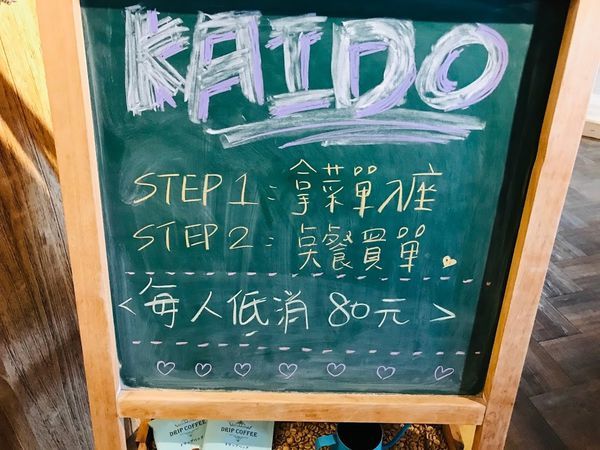 KAIDO
STEP 1: 拿菜單入座
STEP 2: 點餐買單
<每人低消 80元>
DRIP COFFEE
DRIP COFFEE